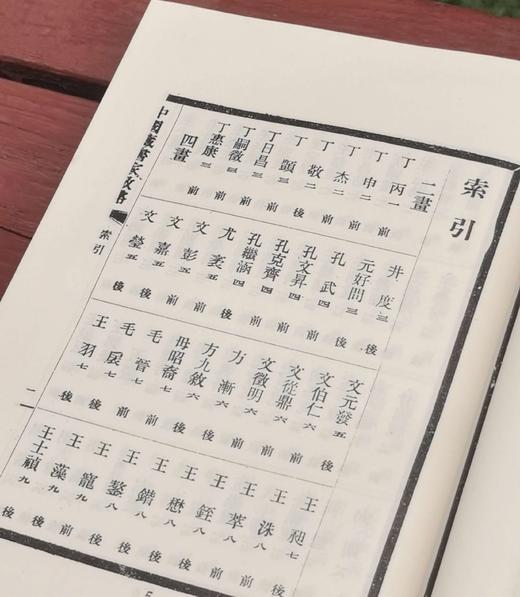 索引
二畫
丁丙一前
丁申二前
丁杰二前
丁敬二前
丁顗二後
丁日昌三前
丁嗣徵三前
丁惠康三前
四畫
井度三後
元好問三前
孔武四前
孔文昇四後
孔克齊四前
孔繼涵四後
尤袤五後
文彭五前
文嘉五前
文瑩五後
文元發五後
文伯仁六前
文從鼎六前
文徵明六前
方漸六後
方九敘六前
毋昭裔六前
毛晉七後
毛扆七後
王羽七後
王昶七
王洙八後
王莘八前
王銍八前
王懋八後
王錯八後
王鏊八後
王寵九前
王藻九後
王士禎九後
中國藏書家攷略
索引
二